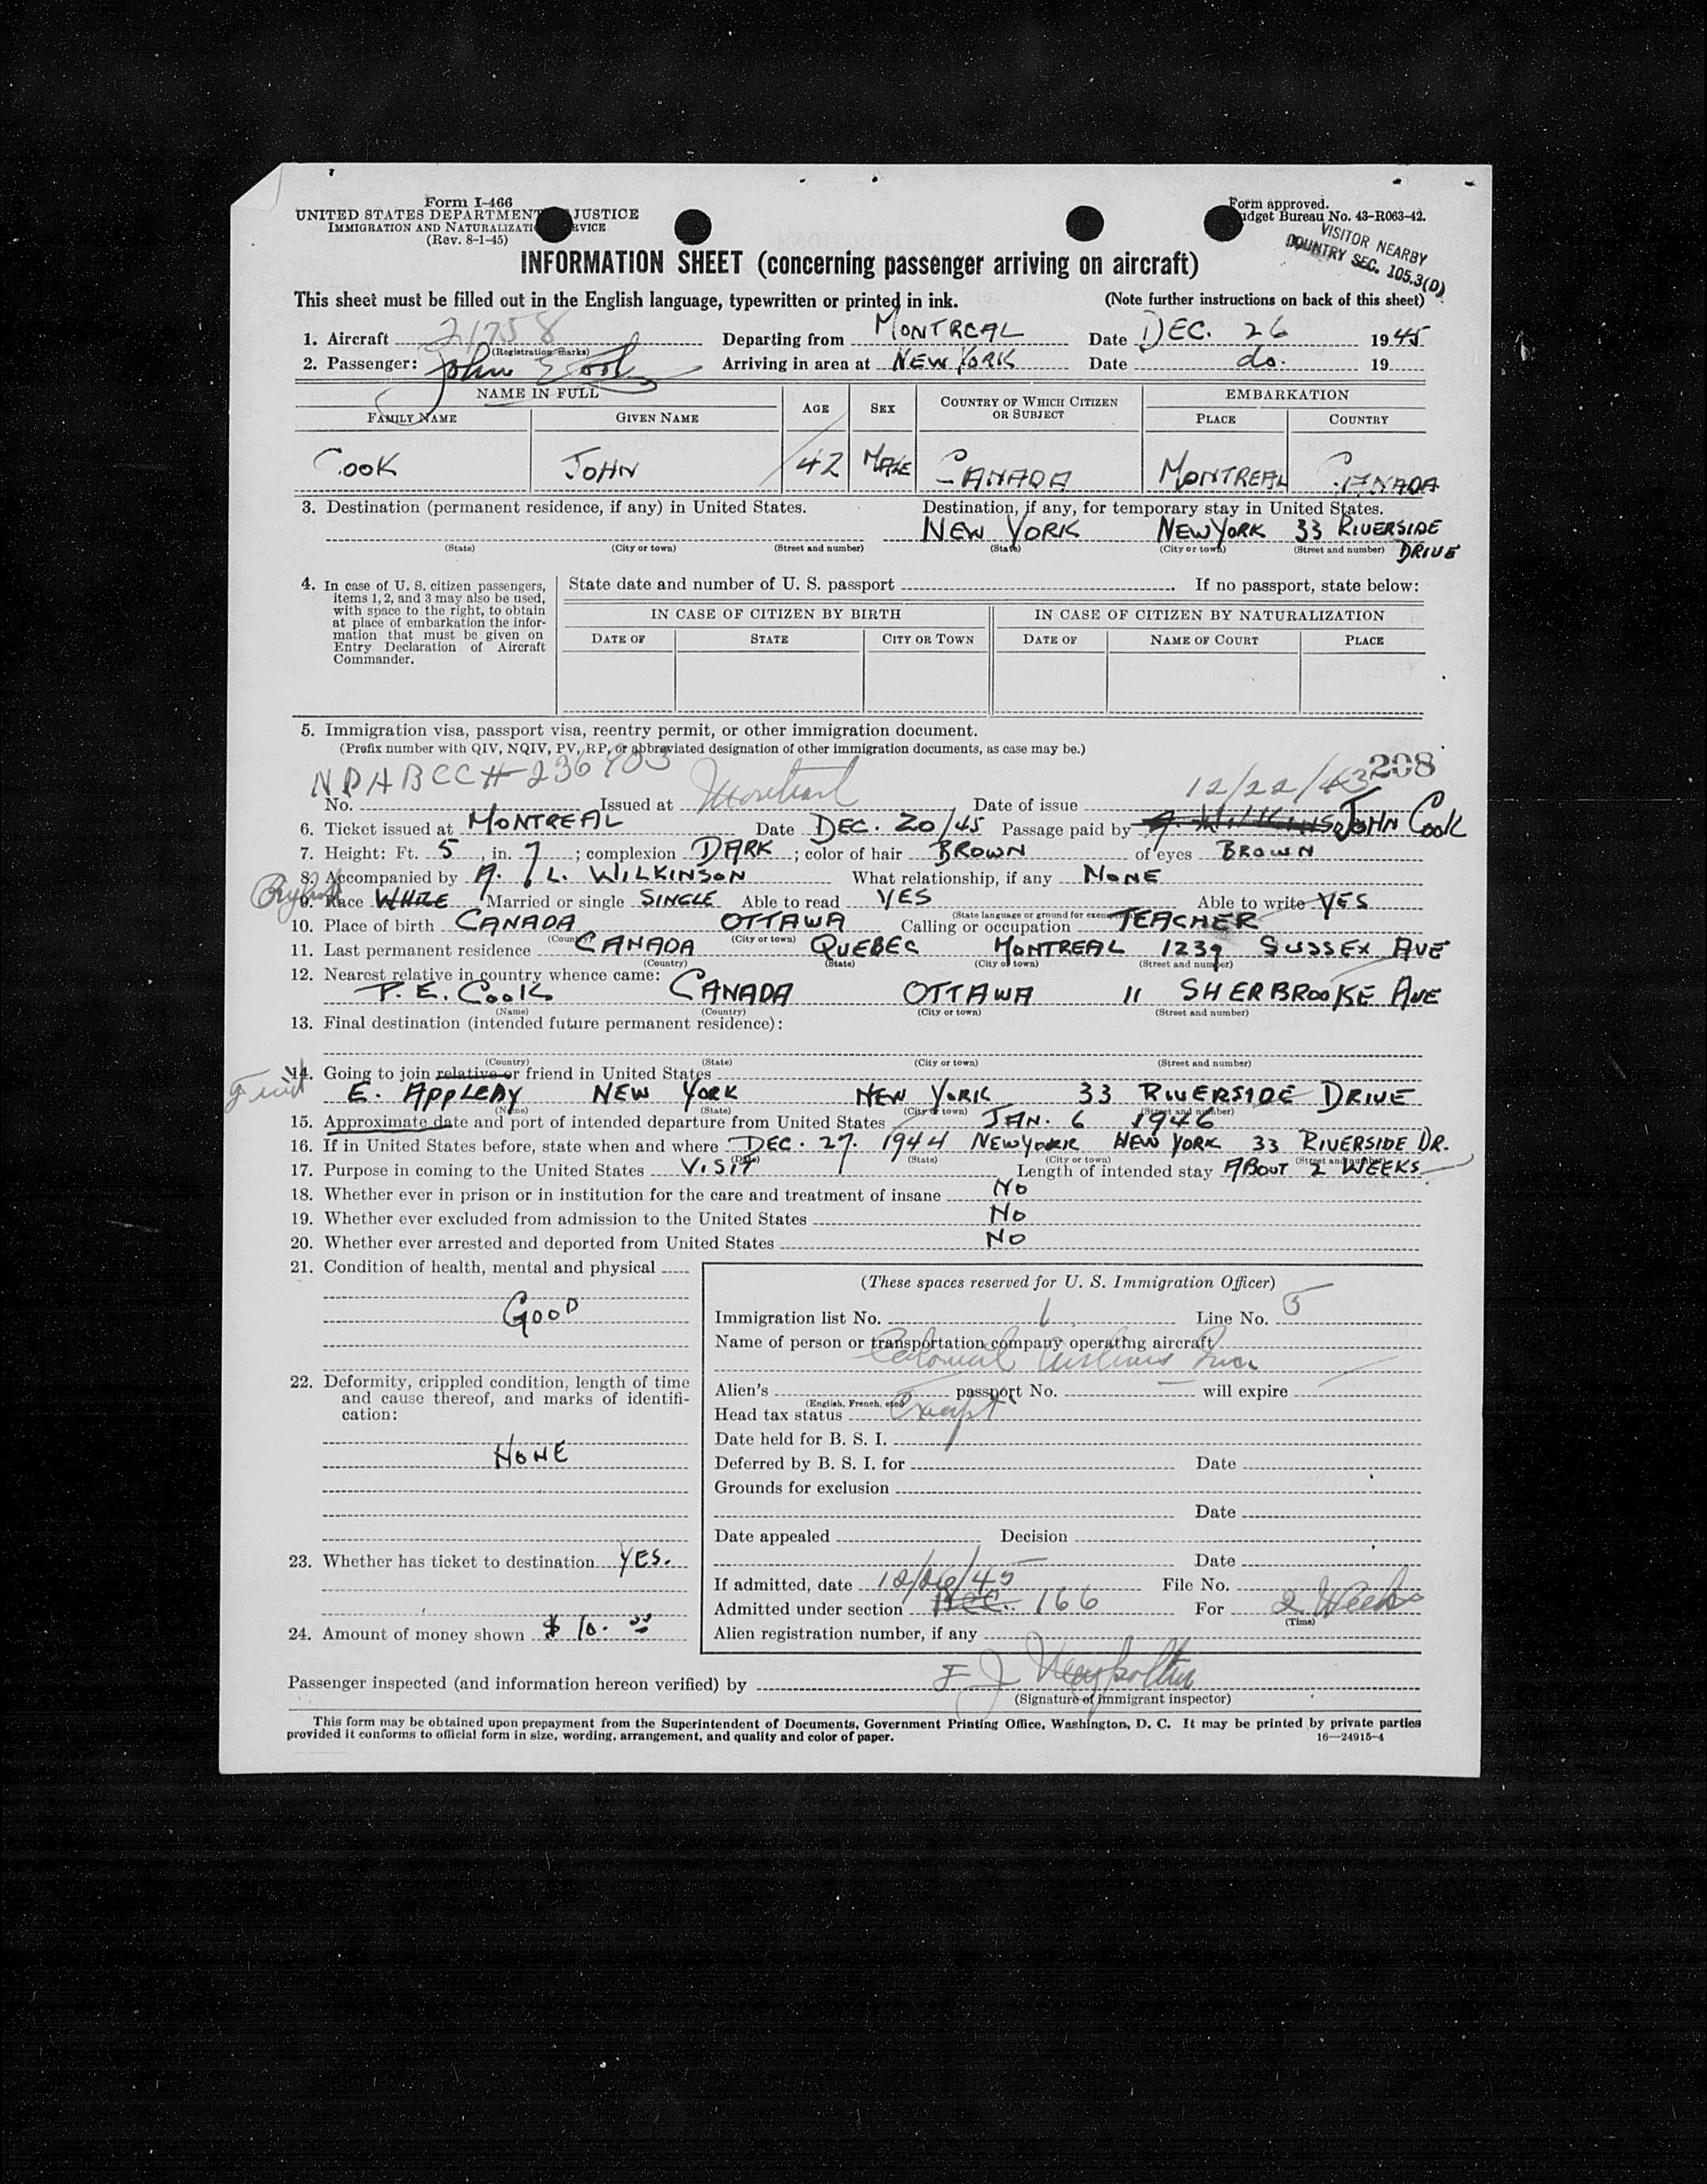 Form I-466
UNITED STATES DEPARTMENT JUSTICE
IMMIGRATION AND NATURALIZATI RVICE
(Rev. 8-1-45)
Form approved.
udget Bureau No. 43-R063-42.
VISITOR NEARBY
COUNTRY SEC. 105.3(D)
INFORMATION SHEET (concerning passenger arriving on aircraft)
This sheet must be filled out in the English language, typewritten or printed in ink. (Note further instructions on back of this sheet)
1. Aircraft 21758 Departing from MONTREAL Date DEC. 26 1945
(Registration marks)
2. Passenger: John Cook Arriving in area at NEW YORK Date do. 19
NAME IN FULL AGE SEX COUNTRY OF WHICH CITIZEN OR SUBJECT EMBARKATION
FAMILY NAME GIVEN NAME PLACE COUNTRY
COOK JOHN 42 MALE CANADA MONTREAL CANADA
3. Destination (permanent residence, if any) in United States. Destination, if any, for temporary stay in United States.
NEW YORK NEW YORK 33 RIVERSIDE DRIVE
(State) (City or town) (Street and number) (State) (City or town) (Street and number)
4. In case of U. S. citizen passengers, items 1, 2, and 3 may also be used, with space to the right, to obtain at place of embarkation the information that must be given on Entry Declaration of Aircraft Commander.
State date and number of U. S. passport If no passport, state below:
IN CASE OF CITIZEN BY BIRTH IN CASE OF CITIZEN BY NATURALIZATION
DATE OF STATE CITY OR TOWN DATE OF NAME OF COURT PLACE
5. Immigration visa, passport visa, reentry permit, or other immigration document.
(Prefix number with QIV, NQIV, PV, RP, or abbreviated designation of other immigration documents, as case may be.)
208
No. NRABCC# 236703 Issued at Montreal Date of issue 12/22/43
6. Ticket issued at MONTREAL Date DEC. 20/45 Passage paid by A. WILKINSON JOHN COOK
7. Height: Ft. 5, in. 7; complexion DARK; color of hair BROWN of eyes BROWN
8. Accompanied by A. L. WILKINSON What relationship, if any NONE
9. Race WHITE Married or single SINGLE Able to read YES Able to write YES
(State language or ground for exemption)
10. Place of birth CANADA OTTAWA Calling or occupation TEACHER
(Country) (City or town)
11. Last permanent residence CANADA QUEBEC MONTREAL 1239 SUSSEX AVE
(Country) (State) (City or town) (Street and number)
12. Nearest relative in country whence came:
P. E. COOK CANADA OTTAWA 11 SHERBROOKE AVE
(Name) (Country) (City or town) (Street and number)
13. Final destination (intended future permanent residence):
(Country) (State) (City or town) (Street and number)
14. Going to join relative or friend in United States
E. APPLEBY NEW YORK NEW YORK 33 RIVERSIDE DRIVE
(Name) (State) (City or town) (Street and number)
15. Approximate date and port of intended departure from United States JAN. 6 1946
16. If in United States before, state when and where DEC. 27. 1944 NEW YORK NEW YORK 33 RIVERSIDE DR.
(Date) (State) (City or town) (Street and number)
17. Purpose in coming to the United States VISIT Length of intended stay ABOUT 2 WEEKS
18. Whether ever in prison or in institution for the care and treatment of insane NO
19. Whether ever excluded from admission to the United States NO
20. Whether ever arrested and deported from United States NO
21. Condition of health, mental and physical
GOOD
22. Deformity, crippled condition, length of time and cause thereof, and marks of identification:
NONE
23. Whether has ticket to destination YES.
24. Amount of money shown $ 10.00
(These spaces reserved for U. S. Immigration Officer)
Immigration list No. 1 Line No. 5
Name of person or transportation company operating aircraft
Colonial Airlines Inc
Alien's passport No. — will expire
(English, French, etc.)
Head tax status Exempt
Date held for B. S. I.
Deferred by B. S. I. for Date
Grounds for exclusion
Date
Date appealed Decision
Date
If admitted, date 12/26/45 File No.
Admitted under section 166 For 2 Weeks
(Time)
Alien registration number, if any
Passenger inspected (and information hereon verified) by
(Signature of immigrant inspector)
This form may be obtained upon prepayment from the Superintendent of Documents, Government Printing Office, Washington, D. C. It may be printed by private parties
provided it conforms to official form in size, wording, arrangement, and quality and color of paper. 16—24915-4